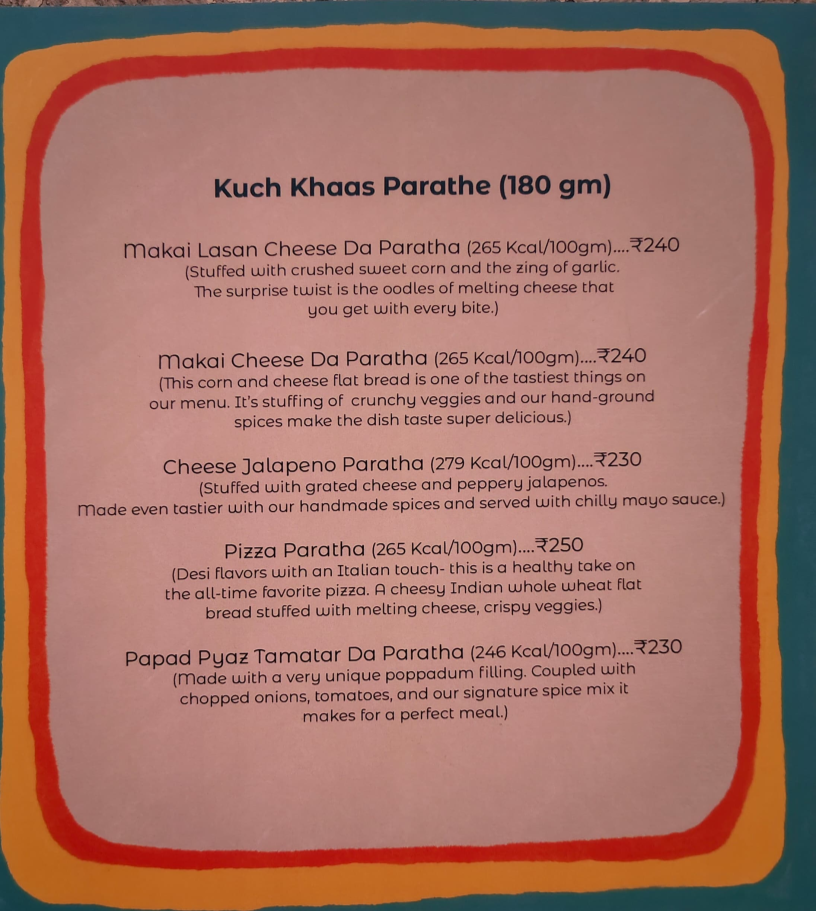 Kuch Khaas Parathe (180 gm)
Makai Lasan Cheese Da Paratha (265 Kcal/100gm)....₹240
(Stuffed with crushed sweet corn and the zing of garlic.
The surprise twist is the oodles of melting cheese that
you get with every bite.)
Makai Cheese Da Paratha (265 Kcal/100gm)....₹240
(This corn and cheese flat bread is one of the tastiest things on
our menu. It's stuffing of crunchy veggies and our hand-ground
spices make the dish taste super delicious.)
Cheese Jalapeno Paratha (279 Kcal/100gm)....₹230
(Stuffed with grated cheese and peppery jalapenos.
Made even tastier with our handmade spices and served with chilly mayo sauce.)
Pizza Paratha (265 Kcal/100gm)....₹250
(Desi flavors with an Italian touch- this is a healthy take on
the all-time favorite pizza. A cheesy Indian whole wheat flat
bread stuffed with melting cheese, crispy veggies.)
Papad Pyaz Tamatar Da Paratha (246 Kcal/100gm)....₹230
(Made with a very unique poppadum filling. Coupled with
chopped onions, tomatoes, and our signature spice mix it
makes for a perfect meal.)